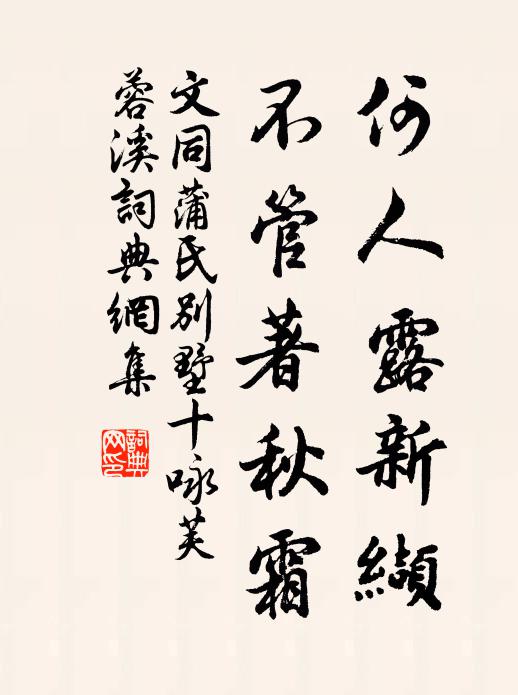 何人露新纈
不管著秋霜
文同蒲氏別墅十咏芙
蓉溪詞典網集
詞典
网印